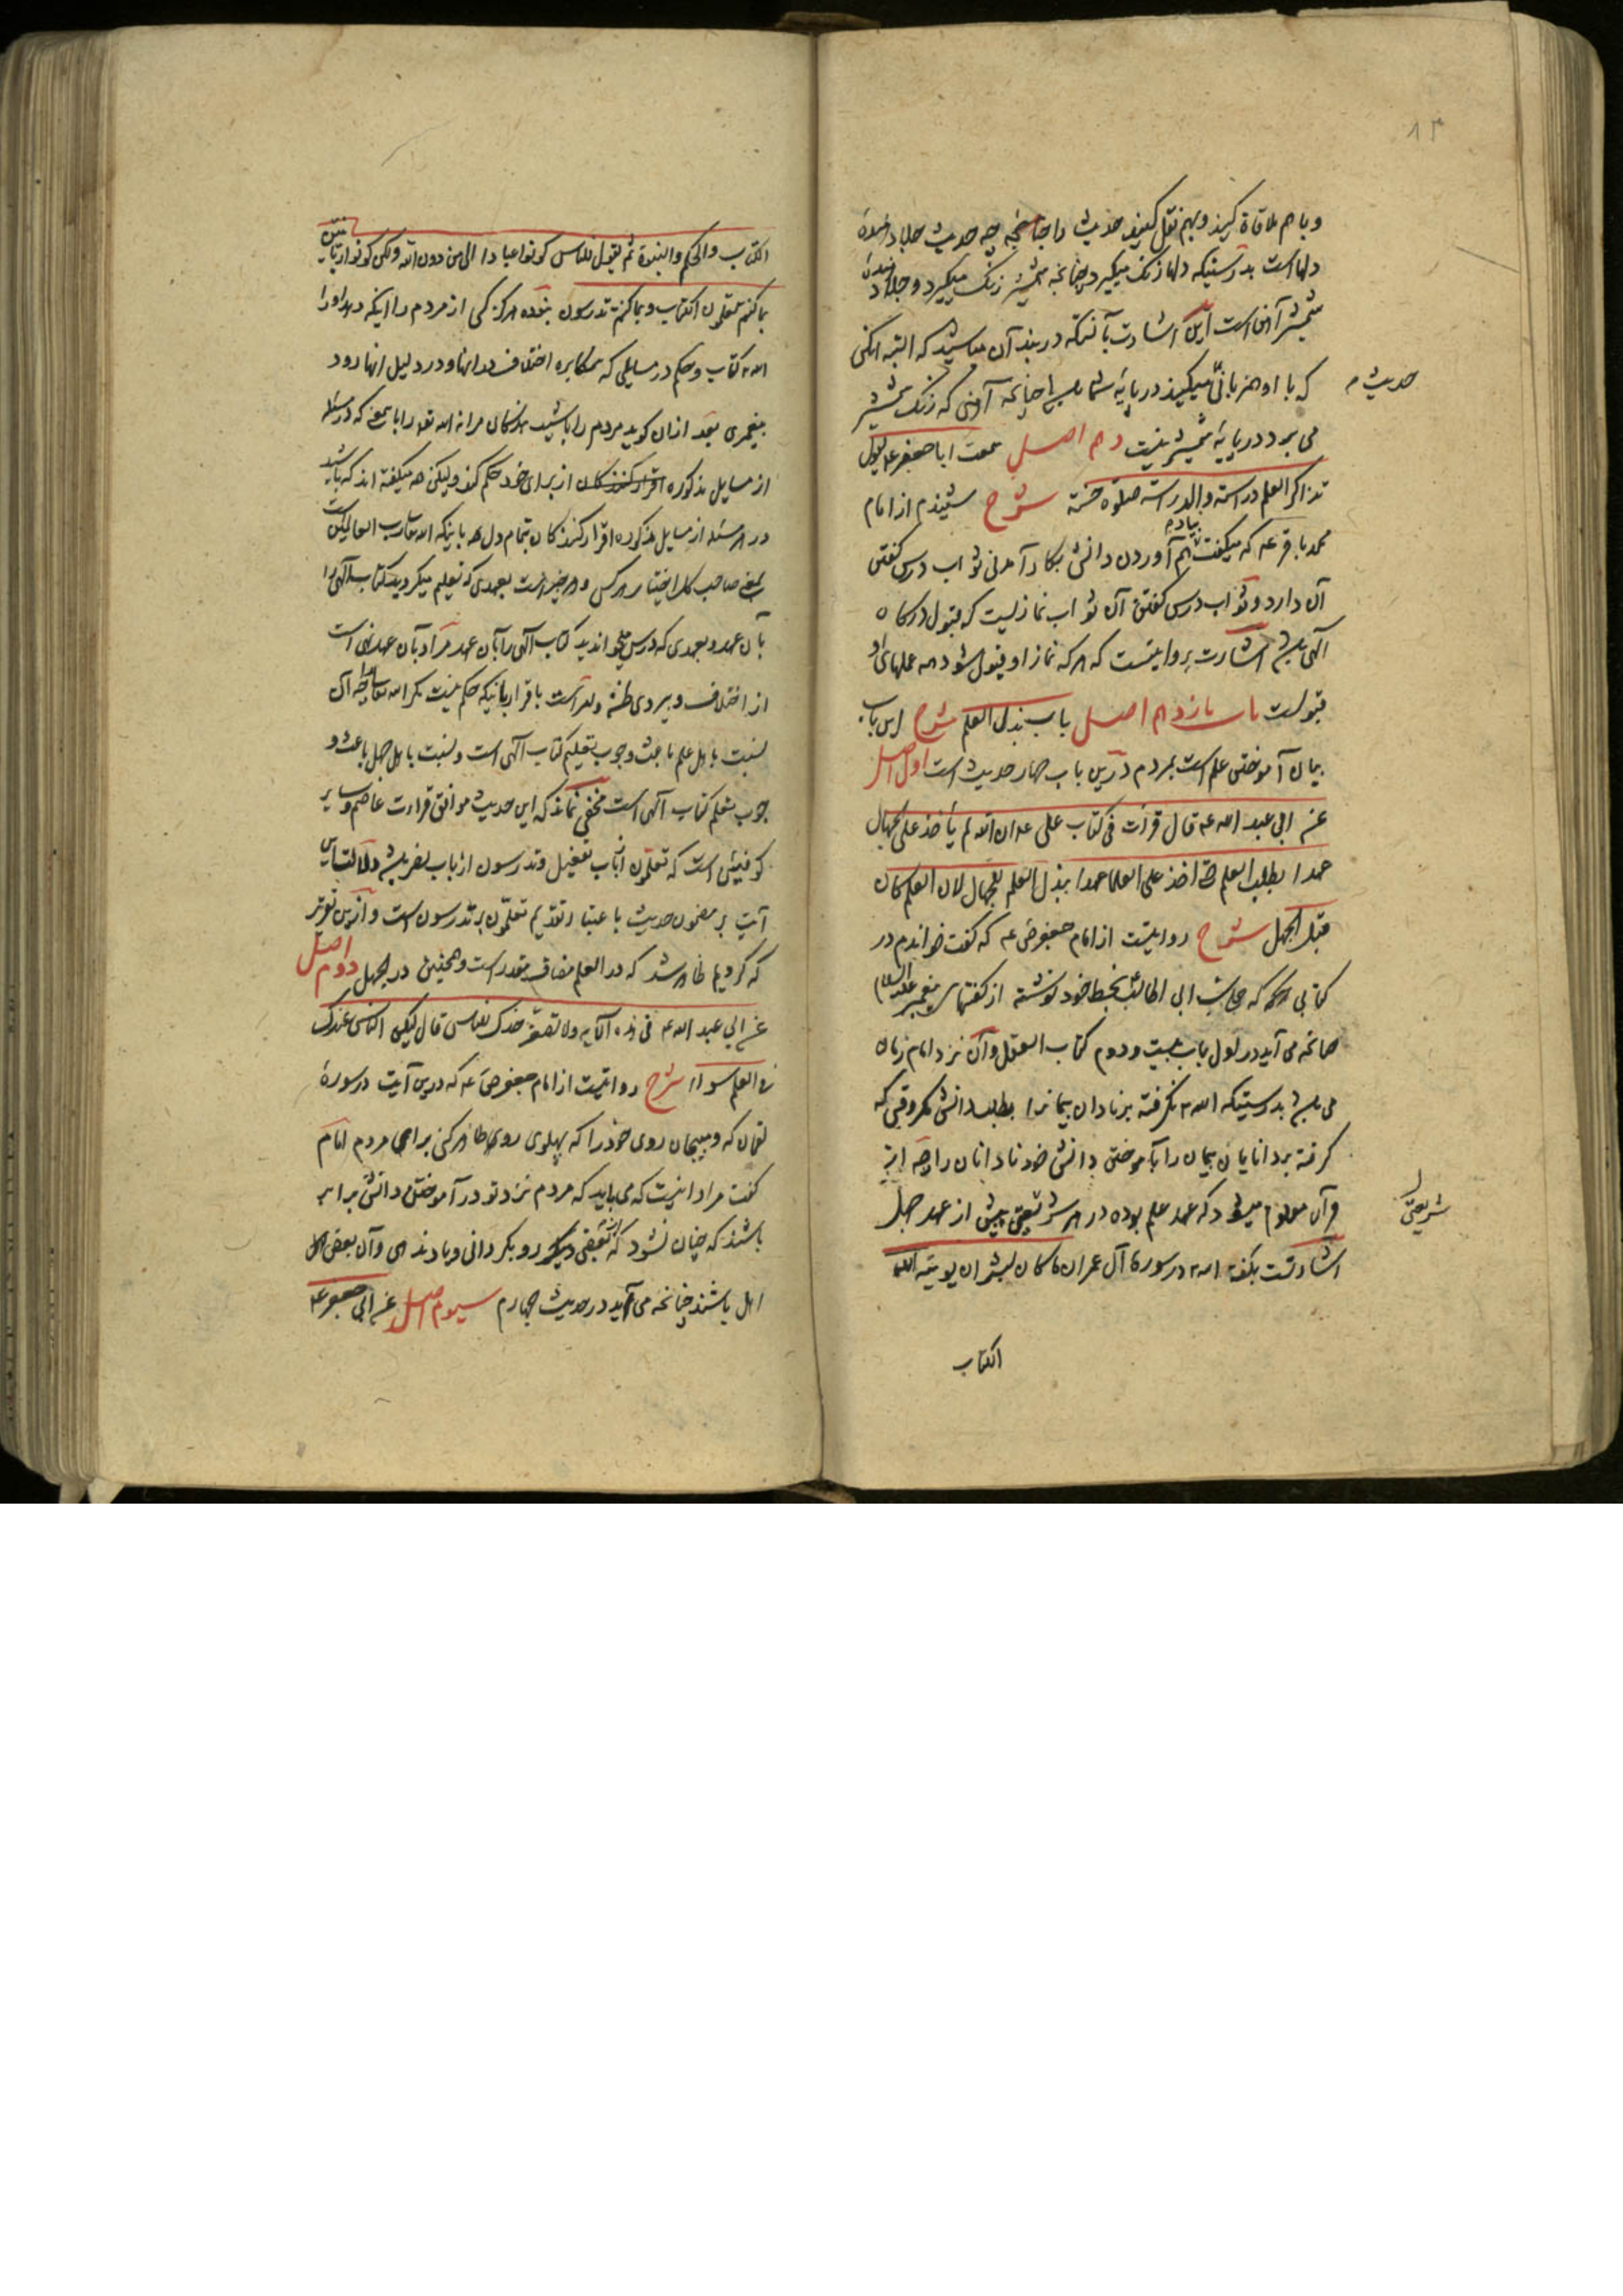 ۸۳
و باهم ملاقاة کنید و بهم نقل کنید حدیث را چه حدیث جلا دهندهٔ
دلهاست بدرستیکه دلها زنک میگیرد چنانچه شمشیر زنک میگیرد و جلا دهندهٔ
شمشیر آهن است این اشارتست بآنکه در بند آن مباشید که البته آنکس
که با او همزبانی میکنید در پایهٔ شما باشد چنانچه آهنی که زنک شمشیر
حدیث
می برد در پایهٔ شمشیر نیست دهم اصل سمعت ابا جعفر ع یقول
تذاکر العلم دراسة والدراسة صلوة حسنة شرح شنیدم از امام
محمد باقر ع که میکفت بیاد هم آوردن دانش بکار آمدنی ثواب درس کفتن
آن دارد و ثواب درس کفتن آن ثواب نمازیست که قبول درکاه
آلهی باشد اشارت بروایتست که هر که نماز او قبول شود همه عملهای او
قبولست باب یازدهم اصل باب بذل العلم شرح این باب
بیان آموختن علم است بمردم درین باب چهار حدیث است اول اصل
عن ابی عبد الله ع قال قرات فی کتاب علی ع ان الله لم یأخذ علی الجهال
عهدا بطلب العلم حتی اخذ علی العلما عهدا ببذل العلم للجهال لان العلم کان
قبل الجهل شرح روایتست از امام جعفر ص ع که کفت خواندم در
کتابی که علی بن ابی طالب بخط خود نوشته از کفتهای پیغمبر علیه السلام
چنانچه می آید در اول باب بیست و دوم کتاب العقل و آن نزد امام زمان
می باشد بدرستیکه الله نگرفته بر نادان پیمانرا بطلب دانش مکر وقتی که
کرفته بر دانایان پیمان را بآموختن دانش خود نادانان را چه از
قرآن معلوم میشود که عهد علم بوده در هر شریعتی پیش از عهد جهل
شریعتی
اشارتست بکفته الله در سورهٔ آل عمران ما کان لبشر ان یؤتیه الله
الکتاب
الکتاب والحکم والنبوة ثم یقول للناس کونوا عبادا لی من دون الله ولکن کونوا ربانیین
بما کنتم تعلمون الکتاب وبما کنتم تدرسون نبوده هرکز کسی از مردم را اینکه دهد او را
الله کتاب و حکم در مسایلی که مکابره اختلاف در آنها و در دلیل آنها رود
پیغمبری بعد ازان کوید مردم را باشید بندکان مرا نه الله تعالی را که در مسئله
از مسایل مذکوره از برای خود حکم کند و لیکن همه میکفته اند که باشید
در هر مسئله از مسایل مذکوره اقرار کنندکان بتمام دل باینکه الله تعالی رب العالمین است
یعنی صاحب کل اختیار هر کس و هر چیز است بعهدی که تعلیم میکردید کتاب آلهی را
بآن عهد و بعهدی که درس میخواندید کتاب آلهی را بآن عهد مراد بآن عهد نهی است
از اختلاف و پیروی ظن و امر است باقرار باینکه حکم نیست مکر الله تعالی را چه آن
نسبت باهل علم باعث وجوب تعلیم کتاب آلهی است و نسبت باهل جهل باعث و
جوب تعلم کتاب آلهی است مخفی نماند که این حدیث موافق قراءت عاصم و سایر
کوفیین است که تعلمون از باب تفعیل و تدرسون از باب نصر باشد
آیت بر مضمون حدیث باعتبار تقدیم تعلمون بر تدرسون است و ازین تقریر
که کردیم ظاهر شد که در العلم مضاف مقدر است و همچنین در الجهل دوم اصل
عن ابی عبد الله ع فی هذه الآیه ولا تصعر خدک للناس قال لیکن الناس عندک
فی العلم سواء شرح روایتست از امام جعفر ص ع که درین آیت در سورهٔ
لقمان که و مپیچان روی خود را که پهلوی روی ظاهر کنی برای مردم امام
کفت مراد اینست که می باید که مردم نزد تو در آموختن دانش برابر
باشند که چنان نشود که از بعضی رو بکردانی و یاد ندهی و آن بعضی اهل
اهل باشند چنانچه می آید در حدیث چهارم سیوم اصل عن ابی جعفر ع